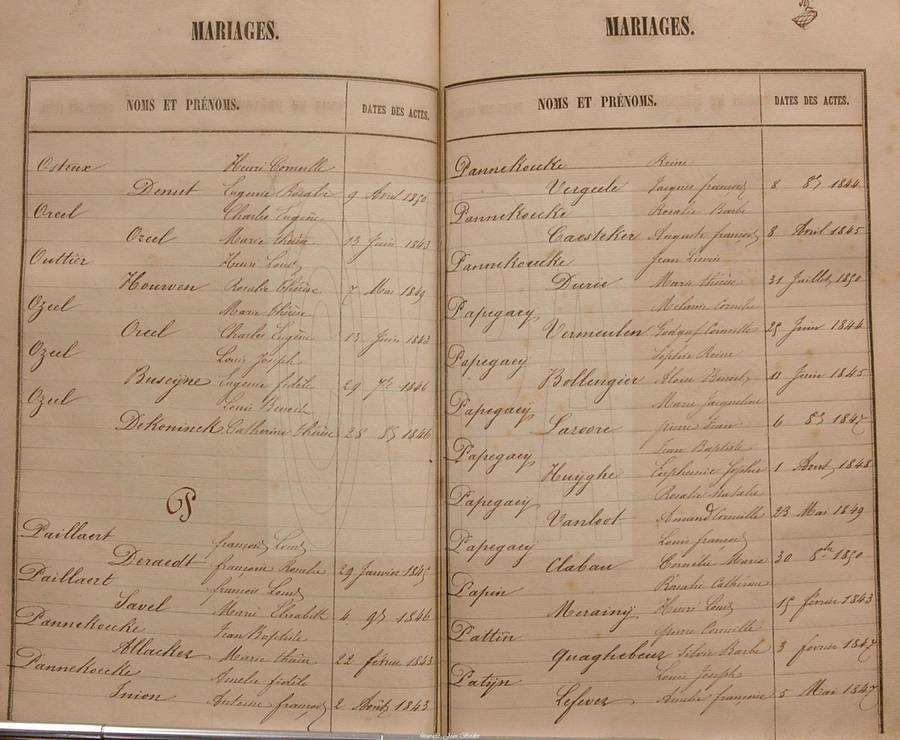 MARIAGES.
NOMS ET PRÉNOMS. DATES DES ACTES.
Osteux Henri Corneille
Demut Eugenie Rosalie 9 Avril 1850
Oreel Charles Eugène
Ozeel Marie thérèse 13 Juin 1843
Outtier Henri Louis
Houwen Rosalie thérèse 7 Mai 1849
Ozeel Marie thérèse
Oreel Charles Eugène 13 Juin 1843
Ozeel Louis Joseph
Buseyne Eugenie fidèle 29 7re 1846
Ozeel Louis Benoit
DeKoninck Catherine thérèse 28 1846
P
Paillaert françois Louis
Deraedt françoise Rosalie 29 Janvier 1845
Paillaert françois Louis
Savel Marie Elisabeth 4 1846
Pannekoucke Jean Baptiste
Allacker Marie thérèse 22 février 1843
Pannekoucke Amelie fidèle
Inion Antoine françois 2 1843
MARIAGES.
NOMS ET PRÉNOMS. DATES DES ACTES.
Pannekoucke Reine
Vergeele Jacques françois 8 1844
Pannekoucke Rosalie Barbe
Caesteker Auguste françois 8 Avril 1845
Pannekoucke Jean Lievin
Durie Marie thérèse 31 Juillet 1850
Papegaey Melanie Cornelie
Vermeulen Corneille 25 Juin 1844
Papegaey Sophie Reine
Bollengier Aloise Benoit 11 Juin 1845
Papegaey Marie Jacqueline
Lasoore pierre Jean 6 1847
Papegaey Jean Baptiste
Huyghe Euphemie Sophie 1 1848
Papegaey Rosalie Natalie
Vanloot Amand Corneille 23 Mai 1849
Papegaey Louis françois
Clabau Cornélie Marie 30 1850
Papin Rosalie Catherine
Merainy Henri Louis 15 février 1843
Pattin pierre Corneille
Quaghebeur Silvie Barbe 3 février 1847
Patyn Louis Joseph
Lefever Amelie françoise 5 Mai 1847